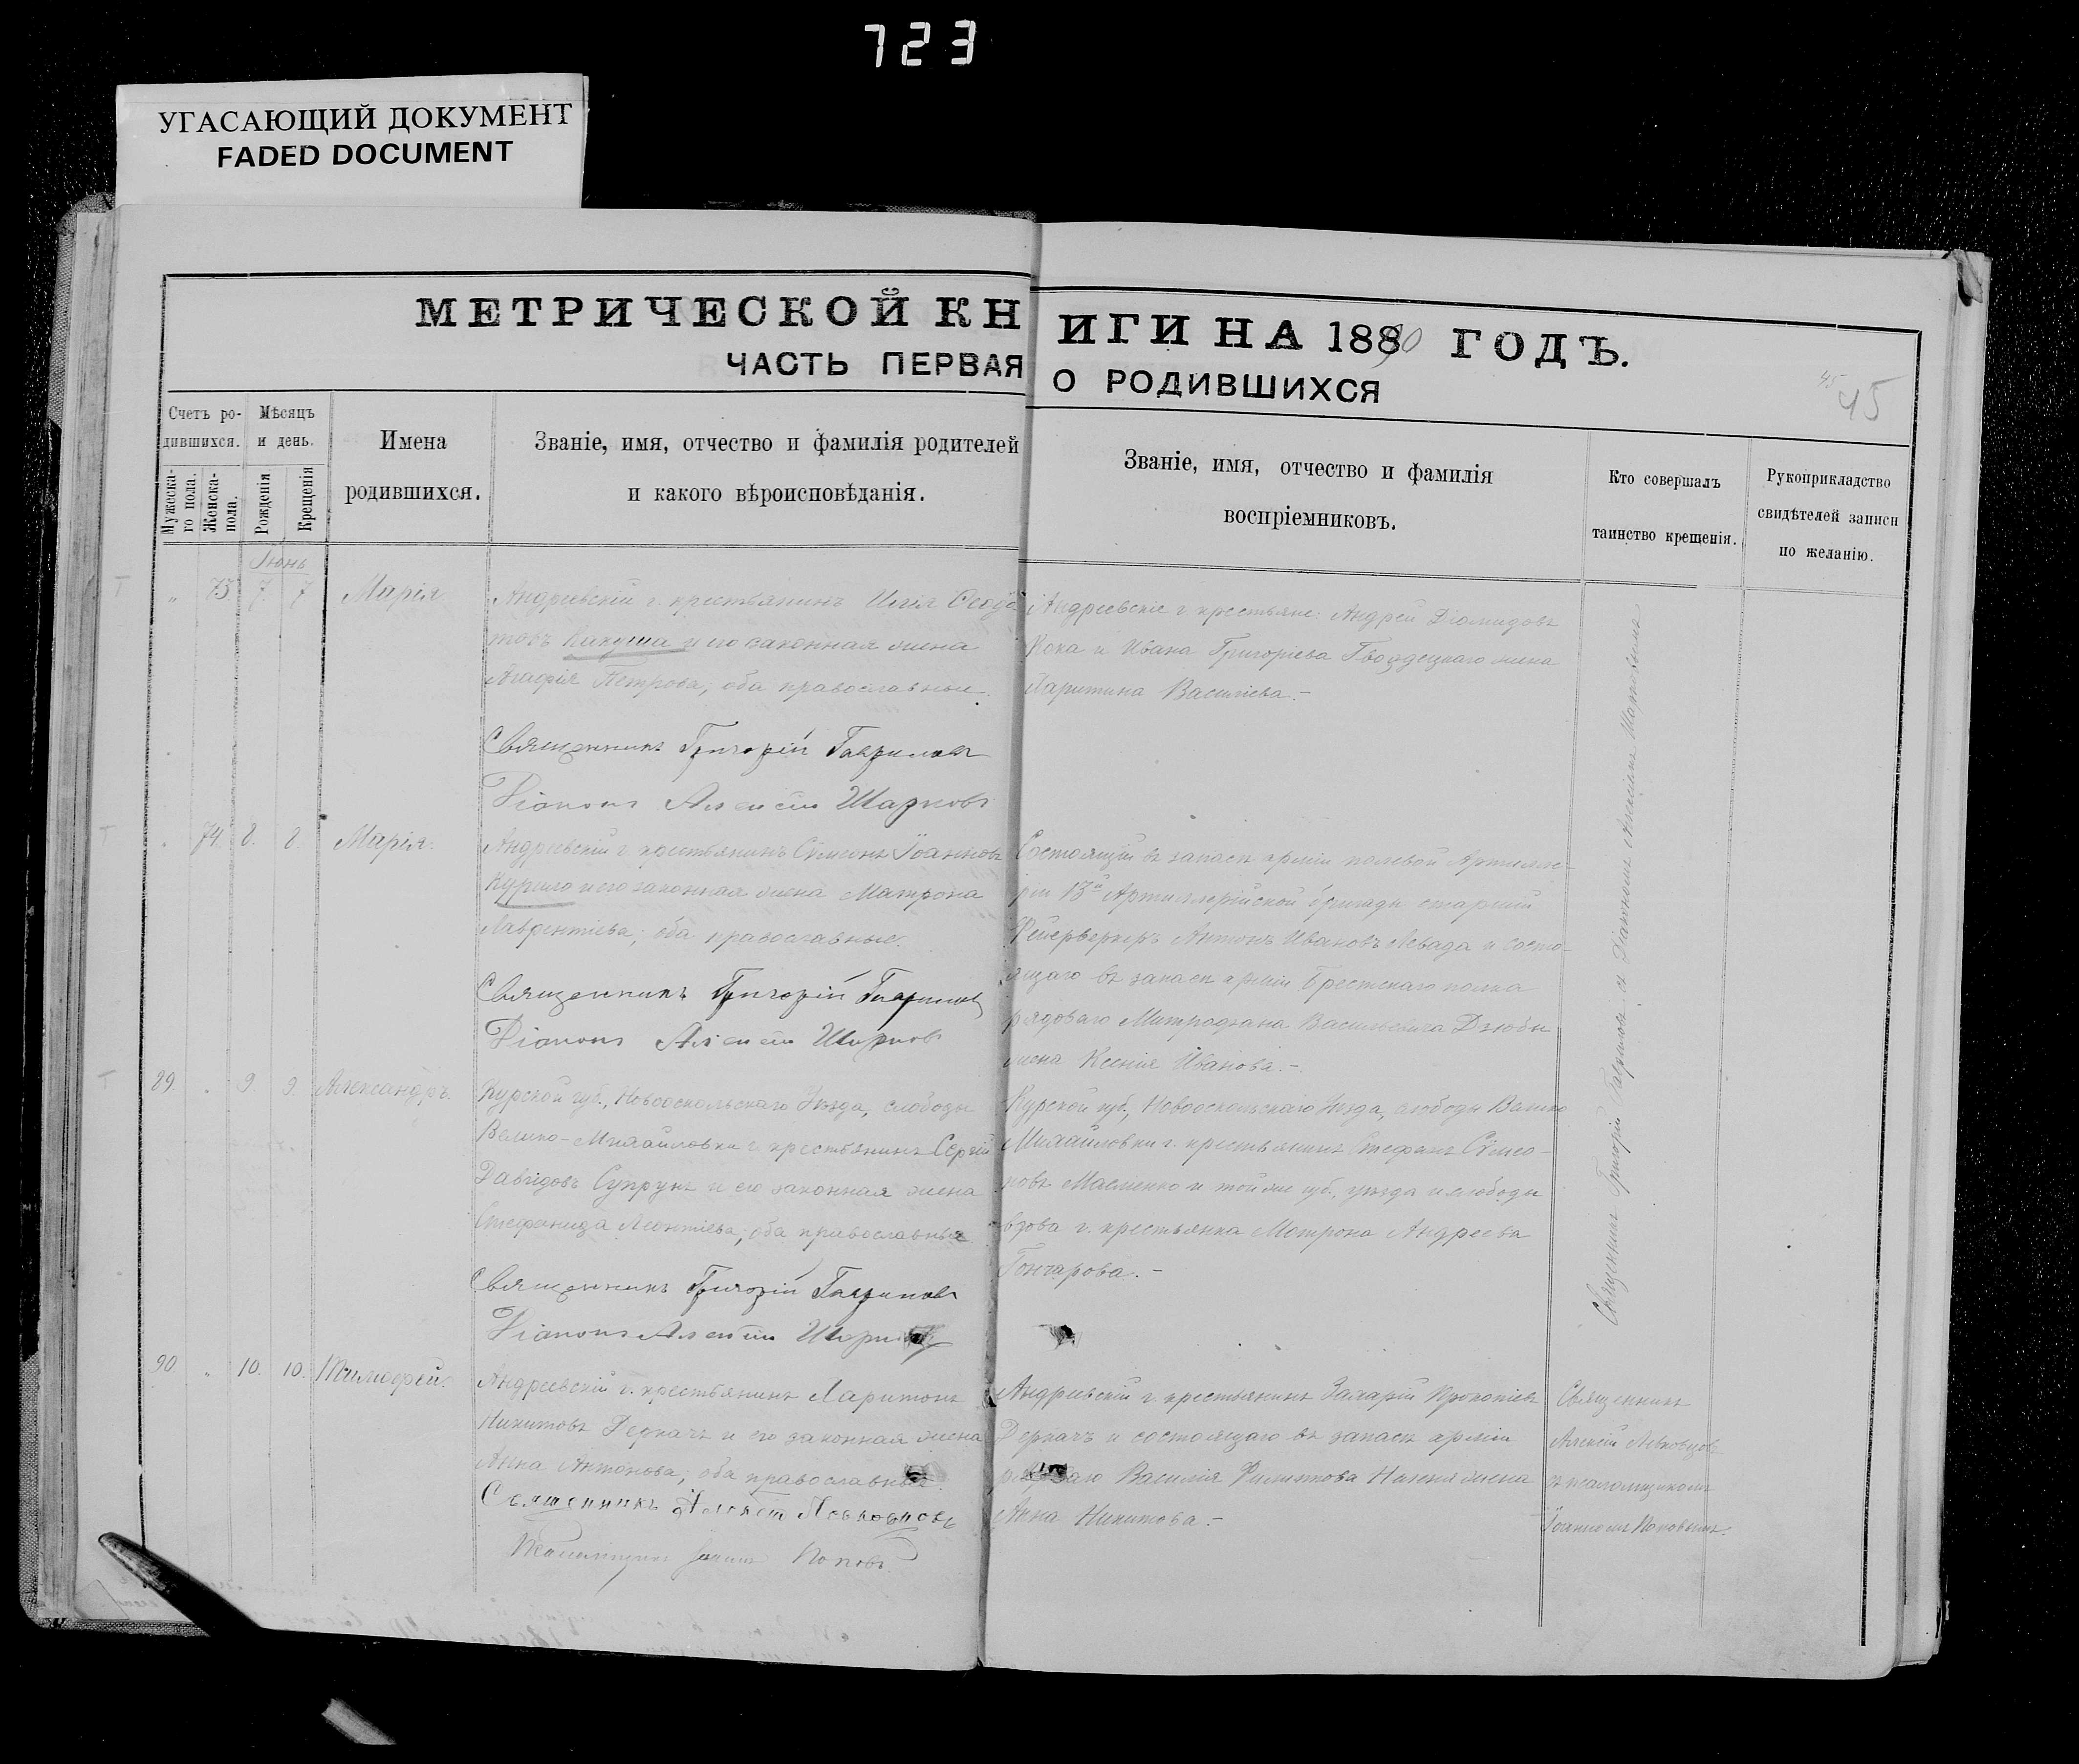 723
УГАСАЮЩИЙ ДОКУМЕНТ
FADED DOCUMENT
МЕТРИЧЕСКОЙ КН
ИГИ НА 1890 ГОДЪ.
ЧАСТЬ ПЕРВАЯ
О РОДИВШИХСЯ
45
45
Счетъ ро-
дившихся.
Мужеска-
го пола.
Женска-
пола.
Мѣсяцъ
и день.
Рожденія
Крещенія
Имена
родившихся.
Званіе, имя, отчество и фамилія родителей
и какого вѣроисповѣданія.
Званіе, имя, отчество и фамилія
воспріемниковъ.
Кто совершалъ
таинство крещенія.
Рукоприкладство
свидѣтелей записи
по желанію.
Іюнь
„ 73 7. 7 Марія
Андреевскій г. крестьянинъ Илія
и его законная жена
Агафія Петрова, оба православные.
Андреевскіе г. крестьяне: Андрей Діомидовъ
Кока и Ивана Григоріева Гвоздецкаго жена
Харитина Василіева.-
Священникъ Григорій Гавриловъ
Діаконъ Алексій Шарковъ
74. 8. 8. Марія.
Андреевскій г. крестьянинъ Сѵмеонъ Іоанновъ
Курило и его законная жена Матрона
Лаврентіева, оба православные.
Состоящій въ запасѣ арміи полевой Артилле-
ріи 13й Артиллерійской бригады старшій
Фейерверкеръ Антонъ Ивановъ Левада и состо-
ящаго въ запасѣ арміи Брестскаго полка
рядоваго Митрофана Васильевича Дзюбы
жена Ксенія Иванова.-
Священникъ Григорій Гавриловъ
Діаконъ Алексій Шарковъ
89. „ 9. 9. Александръ.
Курской губ., Новооскольскаго Уѣзда, слободы
Велико-Михайловки г. крестьянинъ Сергій
Давидовъ Супрунъ и его законная жена
Стефанида Леонтіева, оба православные
Курской губ., Новооскольскаго Уѣзда, слободы Велико
Михайловки г. крестьянинъ Стефанъ Сѵмео-
новъ Масленко и той же губ., уѣзда и слободы
вдова г. крестьянка Матрона Андреева
Гончарова.-
Священникъ Григорій Гавриловъ
Діаконъ Алексій
Священникъ Григорій Гавриловъ съ Діакономъ Алексіемъ Шарковымъ
90. „ 10. 10. Тимофей.
Андреевскій г. крестьянинъ Харитонъ
Никитовъ Деркачъ и его законная жена
Анна Антонова, оба православные.
Андреевскій г. крестьянинъ Захарій Прокопіевъ
Деркачъ и состоящаго въ запасѣ арміи
Василія Филиппова жена
Анна Никитова.-
Священникъ
Алексій Левковцов
съ псаломщикомъ
Іоанномъ Поповымъ.
Священникъ Алексій
Псаломщикъ Іоаннъ Поповъ